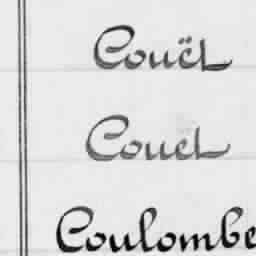 Couët
Couet
Coulombe